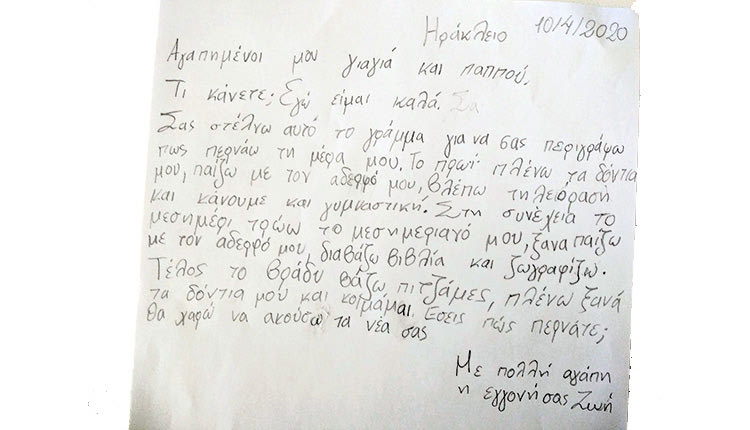 Ηράκλειο 10/4/2020
Αγαπημένοι μου γιαγιά και παππού,
Τι κάνετε; Εγώ είμαι καλά. Σα
Σας στέλνω αυτό το γράμμα για να σας περιγράψω
πως περνάω τη μέρα μου. Το πρωί πλένω τα δόντια
μου, παίζω με τον αδερφό μου, βλέπω τηλεόραση
και κάνουμε και γυμναστική. Στη συνέχεια το
μεσημέρι τρώω το μεσημεριανό μου, ξανα παίζω
με τον αδερφό μου, διαβάζω βιβλία και ζωγραφίζω.
Τέλος το βράδυ βάζω πιτζάμες, πλένω ξανά
τα δόντια μού και κοιμάμαι. Εσεις πώς περνάτε;
Θα χαρώ να ακούσω τα νέα σας
Με πολλή αγάπη
η εγγονή σας Ζωή